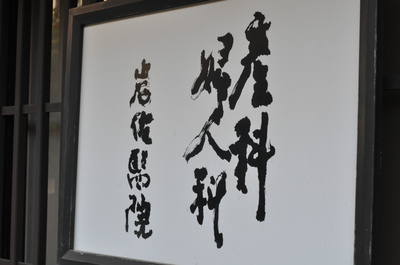 産科
婦人科
岩佐醫院